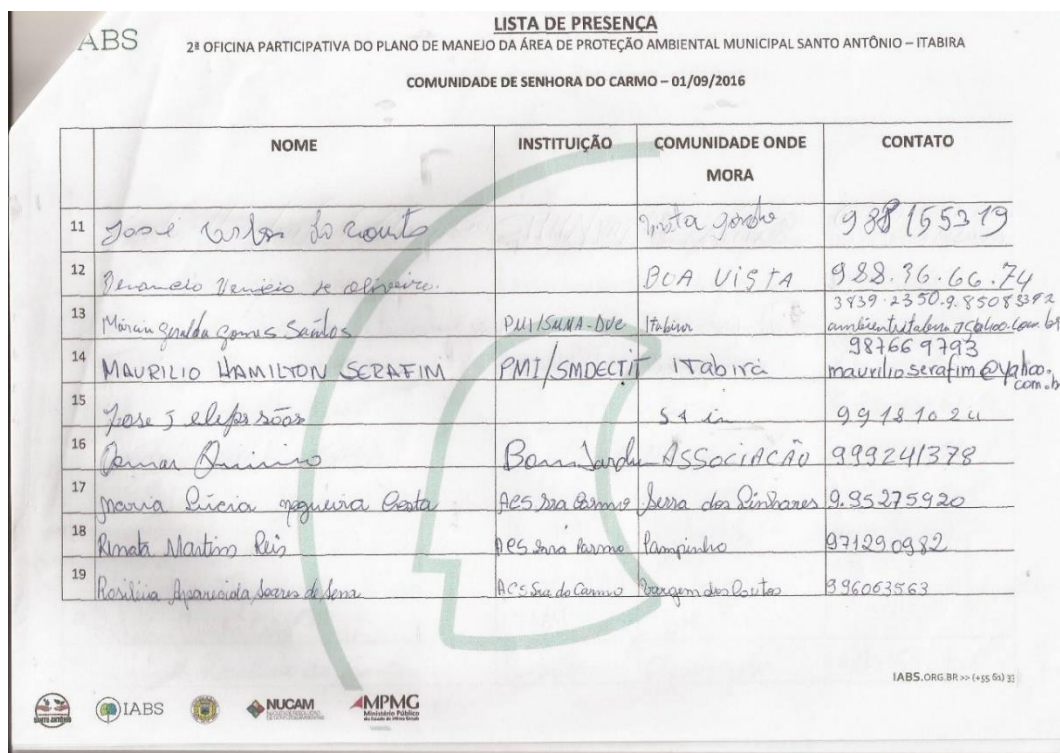 IABS
LISTA DE PRESENÇA
2ª OFICINA PARTICIPATIVA DO PLANO DE MANEJO DA ÁREA DE PROTEÇÃO AMBIENTAL MUNICIPAL SANTO ANTÔNIO – ITABIRA
COMUNIDADE DE SENHORA DO CARMO – 01/09/2016
NOME INSTITUIÇÃO COMUNIDADE ONDE MORA CONTATO
11 José 988155319
12 de BOA VISTA 988.36.66.74
13 Márcia Geralda Gomes Santos PMI/SMMA Itabira 3839-2350
14 MAURILIO HAMILTON SERAFIM PMI/SMDECTIT ITabira 987669793
maurilioserafim@yahoo.com.b
15 Jose 99181024
16 Bom Jardim ASSOCIAÇÃO 999241378
17 Maria Lúcia nogueira Costa ACS Sra Carmo Serra dos Linhares 9.95275920
18 Renata Martins Reis ACS Carmo Campinho 971290982
19 Aparecida Soares de Sena ACS Sra do Carmo Vargem dos 996063563
IABS.ORG.BR >> (+55 61) 33
santo antônio
IABS
NUCAM
MPMG
Ministério Público
do Estado de Minas Gerais